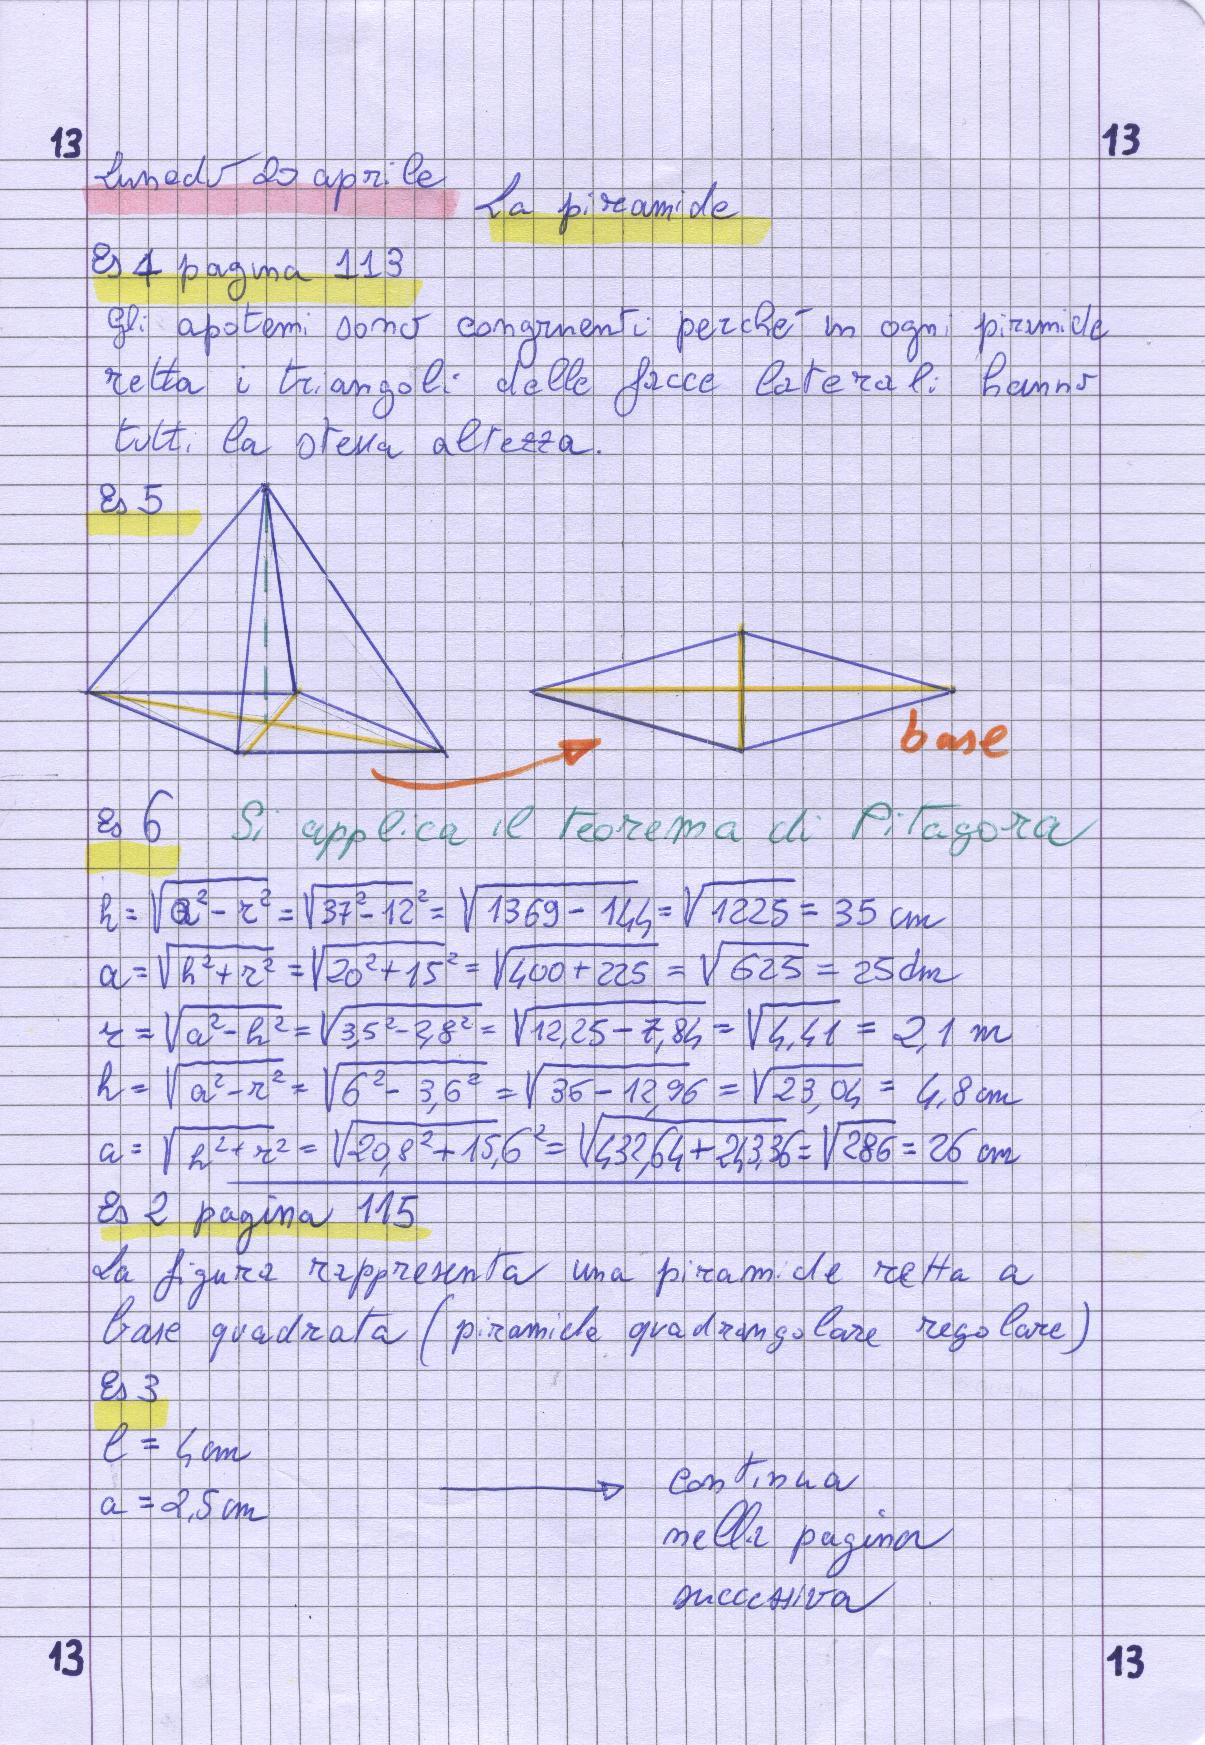 13 13
Lunedì 20 aprile
La piramide
Es 4 pagina 113
Gli apotemi sono congruenti perché in ogni piramide
retta i triangoli delle facce laterali hanno
tutti la stessa altezza.
Es 5
base
Es 6 Si applica il teorema di Pitagora
h = √a² - r² = √37² - 12² = √1369 - 144 = √1225 = 35 cm
a = √h² + r² = √20² + 15² = √400 + 225 = √625 = 25 dm
r = √a² - h² = √3,5² - 2,8² = √12,25 - 7,84 = √4,41 = 2,1 m
h = √a² - r² = √6² - 3,6² = √36 - 12,96 = √23,04 = 4,8 cm
a = √h² + r² = √20,8² + 15,6² = √432,64 + 243,36 = √286 = 26 cm
Es 2 pagina 115
La figura rappresenta una piramide retta a
base quadrata (piramide quadrangolare regolare)
Es 3
l = 4 cm
a = 2,5 cm
continua
nella pagina
successiva
13 13